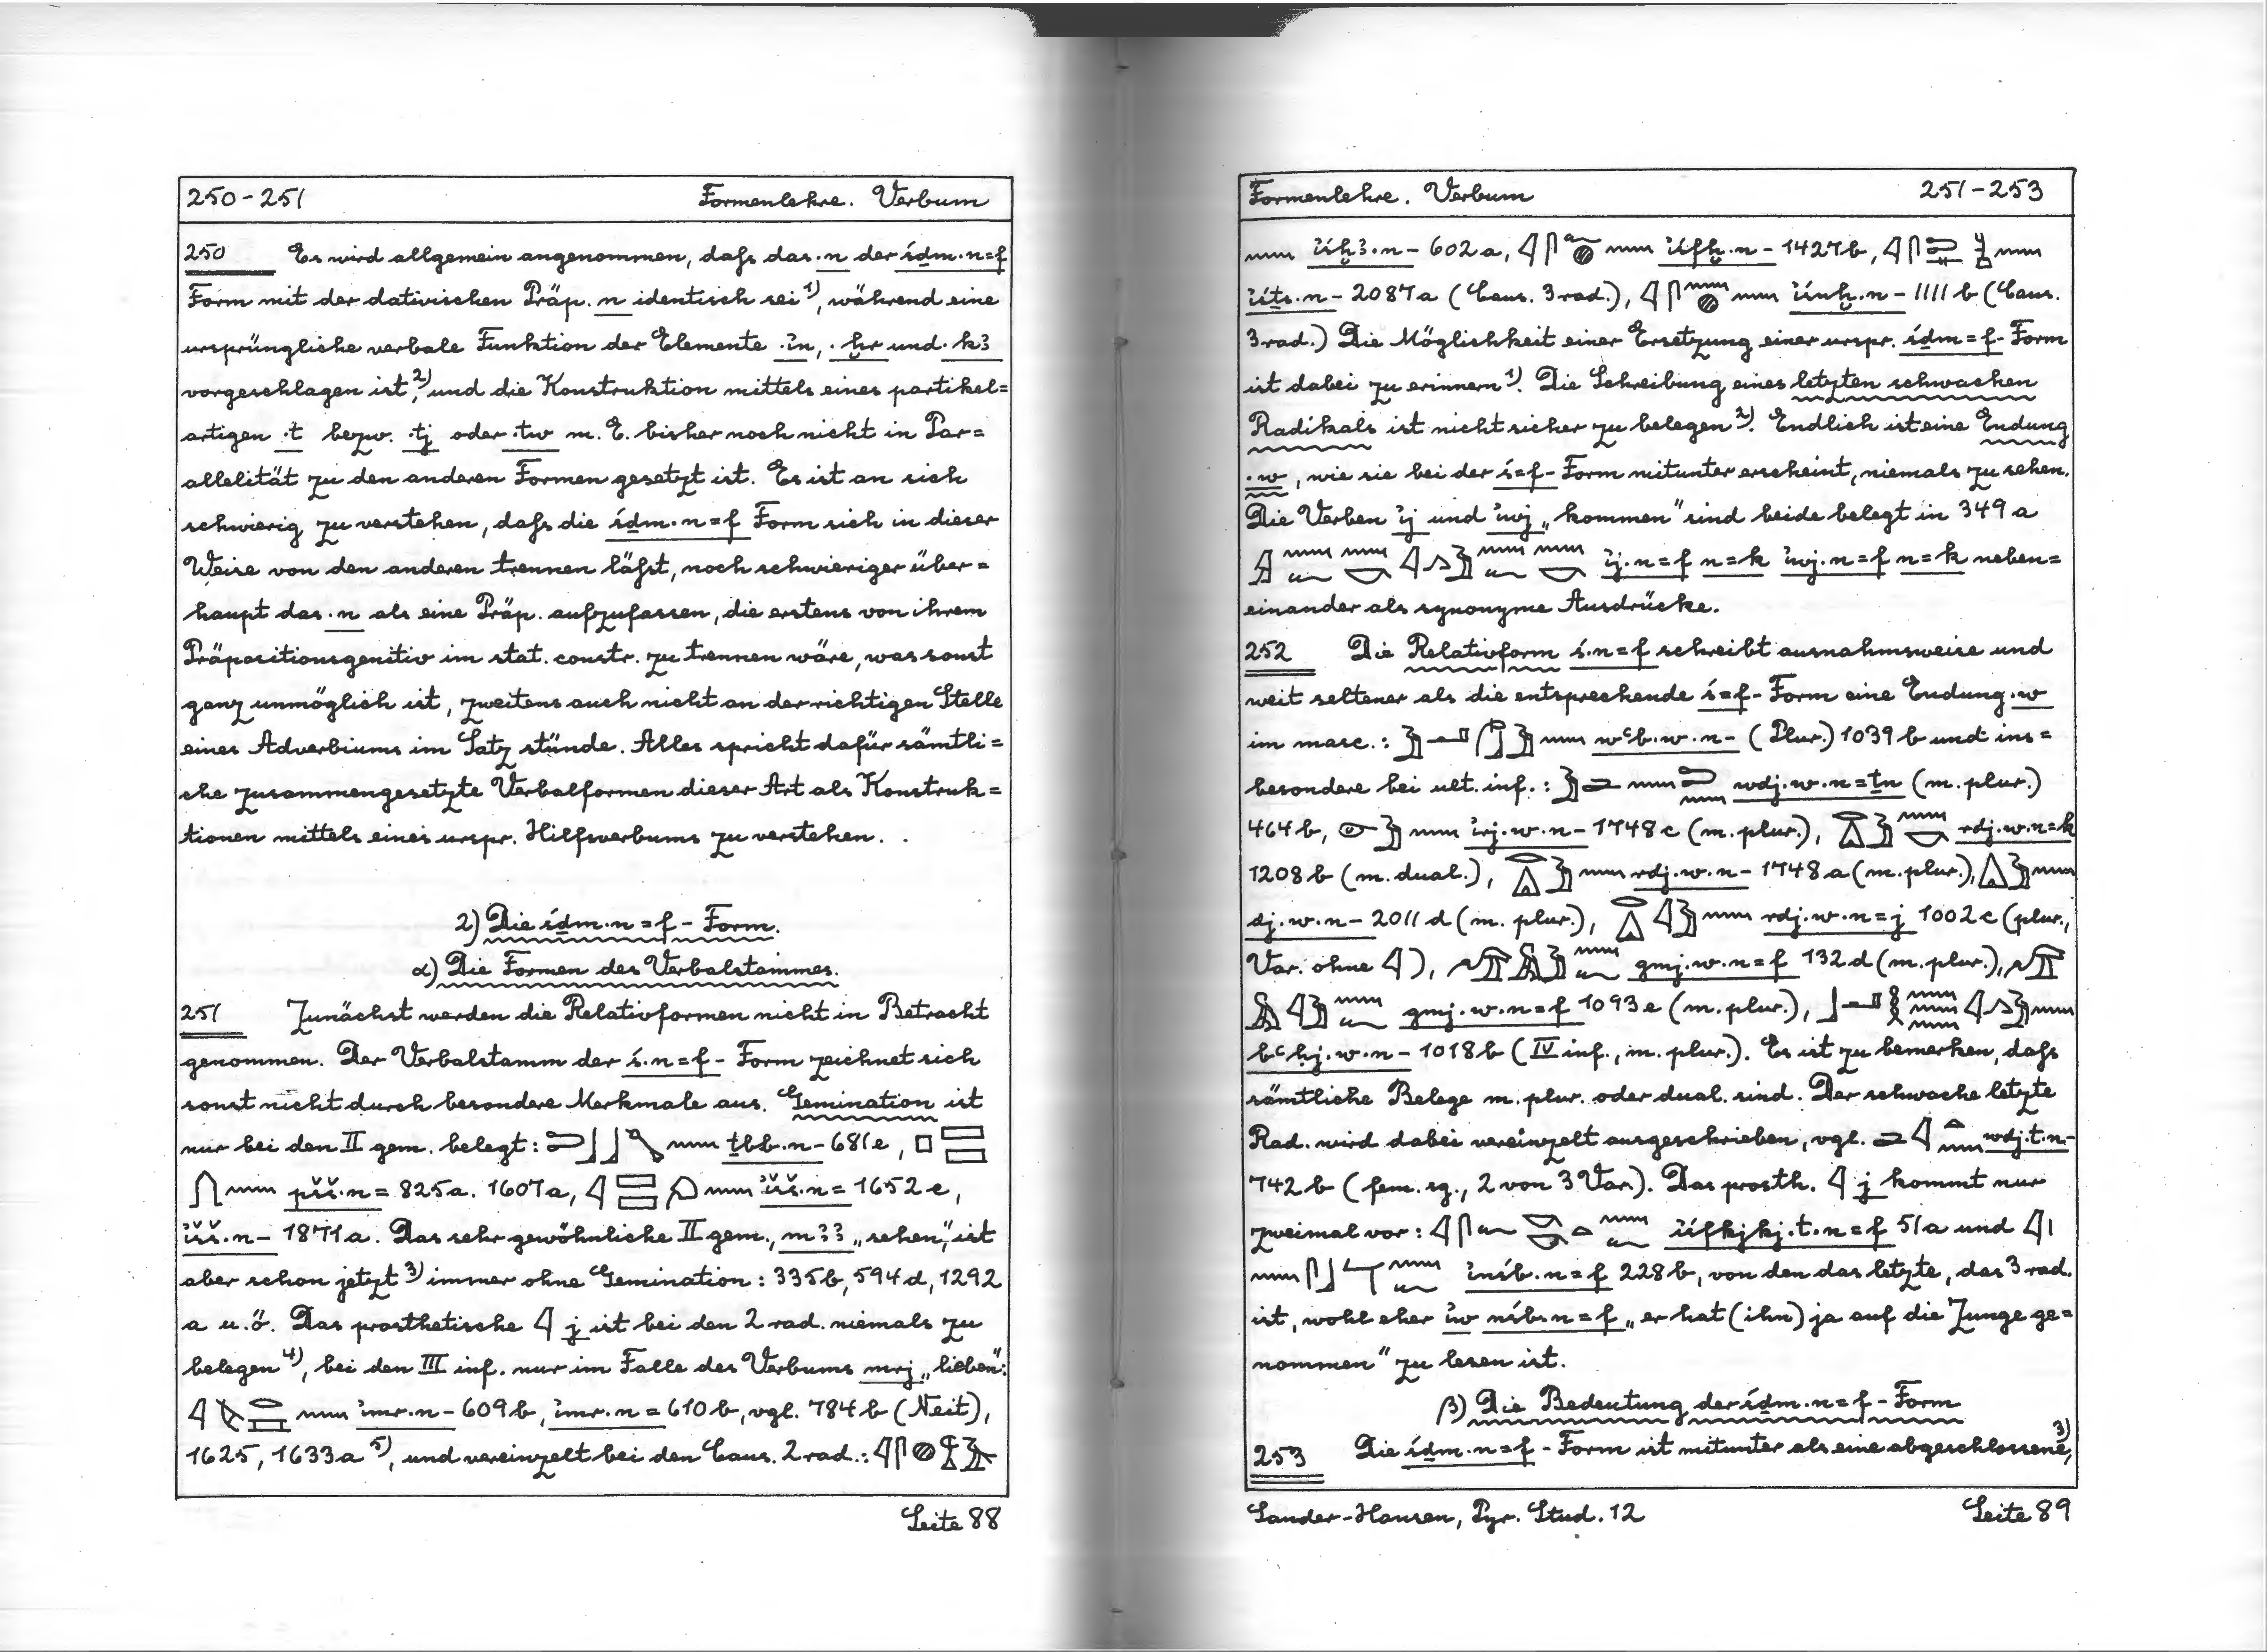 250-251 Formenlehre. Verbum
250 Es wird allgemein angenommen, daſs das .n der śḏm.n=f
Form mit der dativischen Präp. n identisch sei 1), während eine
ursprüngliche verbale Funktion der Elemente .ỉn, .ḫr und .kꜣ
vorgeschlagen ist, 2) und die Konstruktion mittels eines partikel=
artigen .t bezw. .tj oder .tw m. E. bisher noch nicht in Par=
allelität zu den anderen Formen gesetzt ist. Es ist an sich
schwierig zu verstehen, daſs die śḏm.n=f Form sich in dieser
Weise von den anderen trennen läſst, noch schwieriger über=
haupt das .n als eine Präp. aufzufassen, die erstens von ihrem
Präpositionsgenitiv im stat. constr. zu trennen wäre, was sonst
ganz unmöglich ist, zweitens auch nicht an der richtigen Stelle
eines Adverbiums im Satz stünde. Alles spricht dafür sämtli=
che zusammengesetzte Verbalformen dieser Art als Konstruk=
tionen mittels eines urspr. Hilfsverbums zu verstehen.
2) Die śḏm.n=f - Form.
α) Die Formen des Verbalstammes.
251 Zunächst werden die Relativformen nicht in Betracht
genommen. Der Verbalstamm der ś.n=f - Form zeichnet sich
sonst nicht durch besondere Merkmale aus. Gemination ist
nur bei den II gem. belegt: ṯbb.n- 681e,
pšš.n= 825a. 1607a, ỉšš.n= 1652c,
ỉšš.n- 1871a. Das sehr gewöhnliche II gem., mꜣꜣ „sehen", ist
aber schon jetzt 3) immer ohne Gemination: 335b, 594d, 1292
a u.ö. Das prosthetische j ist bei den 2 rad. niemals zu
belegen 4), bei den III inf. nur im Falle des Verbums mrj „lieben":
ỉmr.n- 609b, ỉmr.n= 610b, vgl. 784b (Neit),
1625, 1633a 5), und vereinzelt bei den Caus. 2 rad.:
Seite 88
Formenlehre. Verbum 251-253
ỉśḫꜣ.n- 602a, ỉśfḫ.n- 1427b,
ỉśṯs.n- 2087a (Caus. 3 rad.), ỉśnḫ.n- 1111b (Caus.
3 rad.) Die Möglichkeit einer Ersetzung einer urspr. śḏm=f- Form
ist dabei zu erinnern 1). Die Schreibung eines letzten schwachen
Radikals ist nicht sicher zu belegen 2). Endlich ist eine Endung
.w, wie sie bei der ś=f- Form mitunter erscheint, niemals zu sehen.
Die Verben ỉj und ỉwj „kommen" sind beide belegt in 349a
ỉj.n=f n=k ỉwj.n=f n=k neben=
einander als synonyme Ausdrücke.
252 Die Relativform ś.n=f schreibt ausnahmsweise und
weit seltener als die entsprechende ś=f- Form eine Endung .w
im masc.: wꜥb.w.n- (Plur.) 1039b und ins=
besondere bei ult. inf.: wdj.w.n=ṯn (m. plur.)
464b, ỉrj.w.n- 1748c (m. plur.), rdj.w.n=k
1208b (m. dual.), rdj.w.n- 1748a (m. plur.),
dj.w.n- 2011d (m. plur.), rdj.w.n=j 1002c (plur.,
Var. ohne ), gmj.w.n=f 132d (m. plur.),
gmj.w.n=f 1093e (m. plur.),
bꜥḥj.w.n- 1018b (IV inf., m. plur.). Es ist zu bemerken, daſs
sämtliche Belege m. plur. oder dual. sind. Der schwache letzte
Rad. wird dabei vereinzelt ausgeschrieben, vgl. wdj.t.n-
742b (fem. sg., 2 von 3 Var.). Das prosth. j kommt nur
zweimal vor: ỉśfkjkj.t.n=f 51a und
ỉnśb.n=f 228b, von den das letzte, das 3 rad.
ist, wohl eher ỉw nśb.n=f „er hat (ihn) ja auf die Zunge ge=
nommen" zu lesen ist.
β) Die Bedeutung der śḏm.n=f - Form
253 Die śḏm.n=f - Form ist mitunter als eine abgeschlossene, 3)
Sander-Hansen, Pyr. Stud. 12 Seite 89